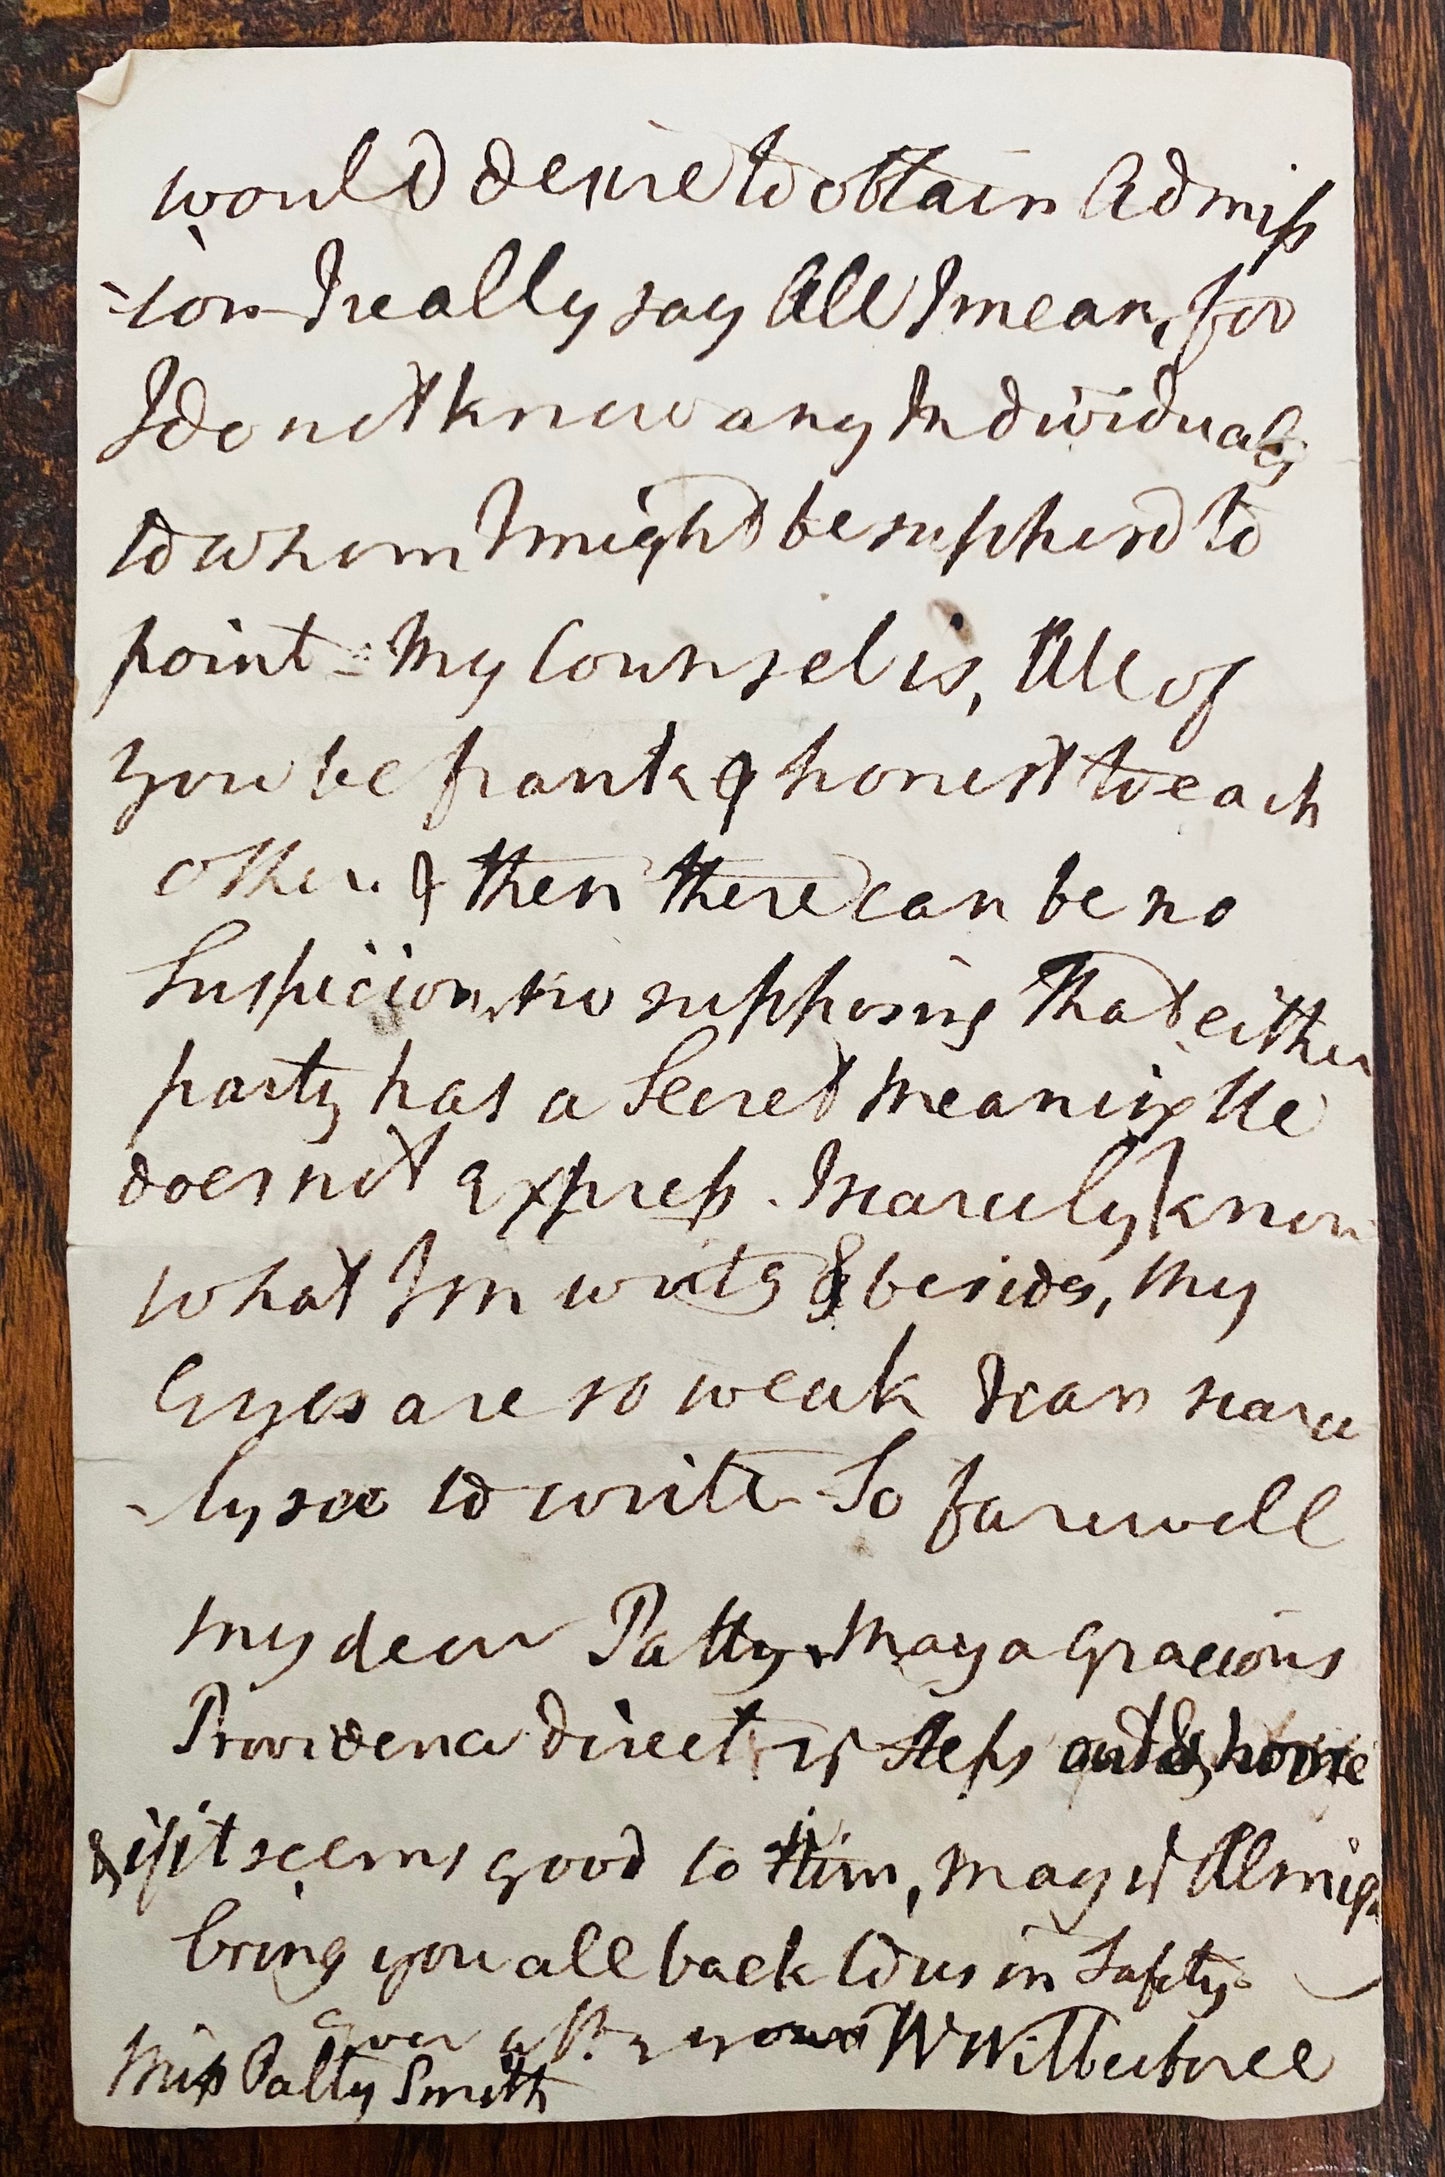 would desire to obtain Admiss
-ion I really say All I mean, for
I do not know any Individuals
to whom I might be suppos'd to
point - My Counsel is, All of
you be frank & honest to each
other. & then there can be no
Suspicion, no supposing that either
party has a Secret Meaning He
does not express. I scarcely know
what I'm writg & besides, my
Eyes are so weak I can scarce
-ly see to write - So farewell
my dear Patty. May a Gracious
Providence direct yr steps out & home
& if it seems good to Him, may ye Almigh
bring you all back to us in Safety.
Ever yours W Wilberforce
Miss Patty Smith